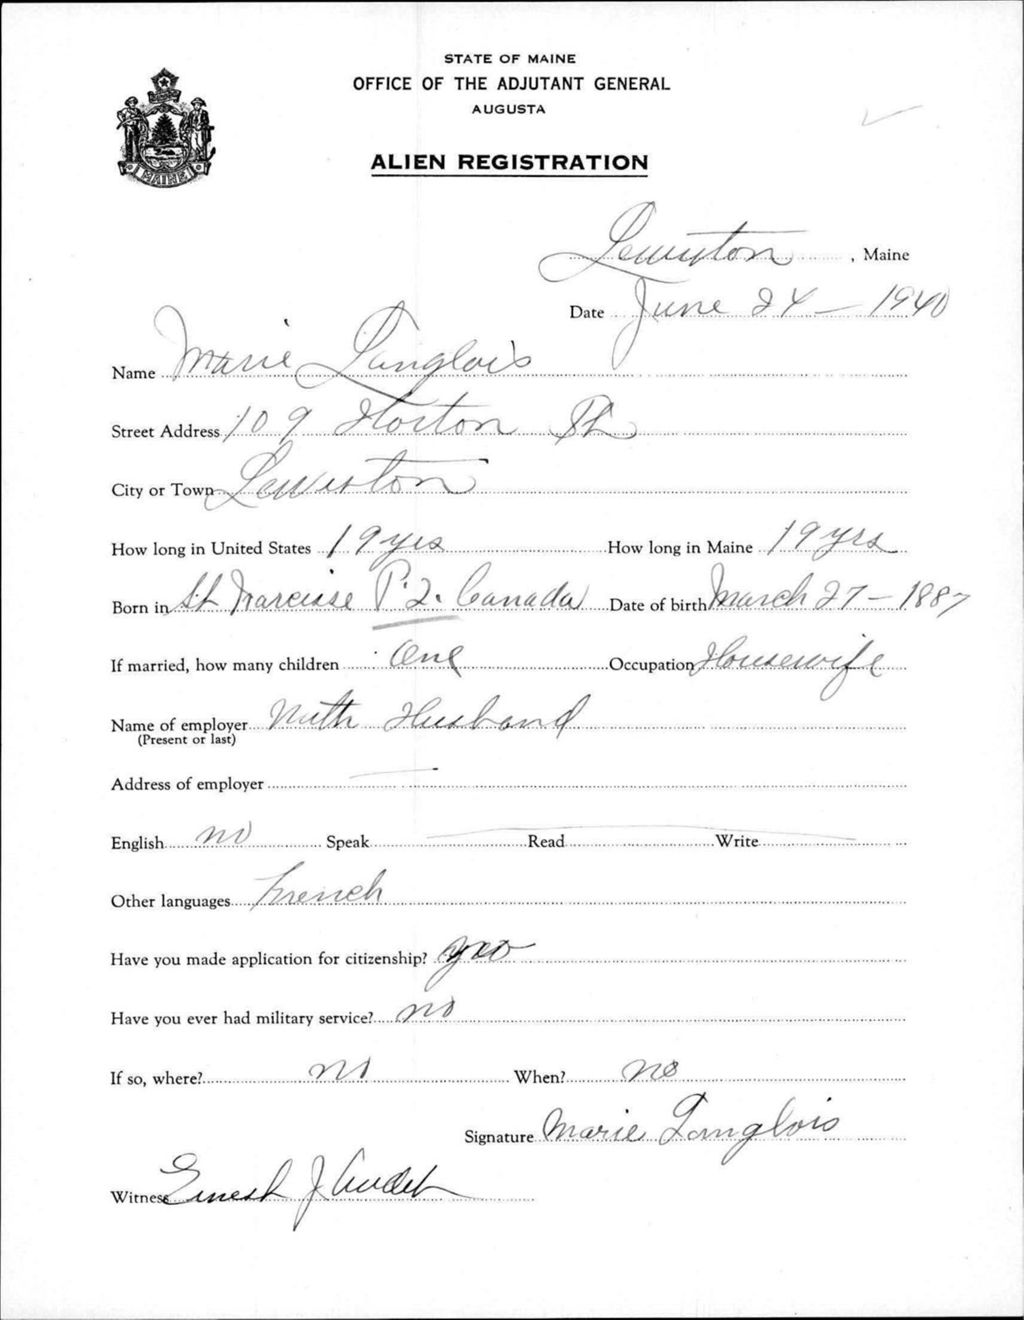 STATE OF MAINE
OFFICE OF THE ADJUTANT GENERAL
AUGUSTA
ALIEN REGISTRATION
MAINE
Lewiston, Maine
Date June 24 - 1940
Name Marie Langlois
Street Address 109 Horton St
City or Town Lewiston
How long in United States 19 yrs How long in Maine 19 yrs
Born in St Narcisse P.Q. Canada Date of birth March 27 - 1887
If married, how many children One Occupation Housewife
Name of employer With Husband
(Present or last)
Address of employer —
English no Speak Read Write
Other languages French
Have you made application for citizenship? yes
Have you ever had military service? no
If so, where? no When? no
Signature Marie Langlois
Witness Ernest J Audet